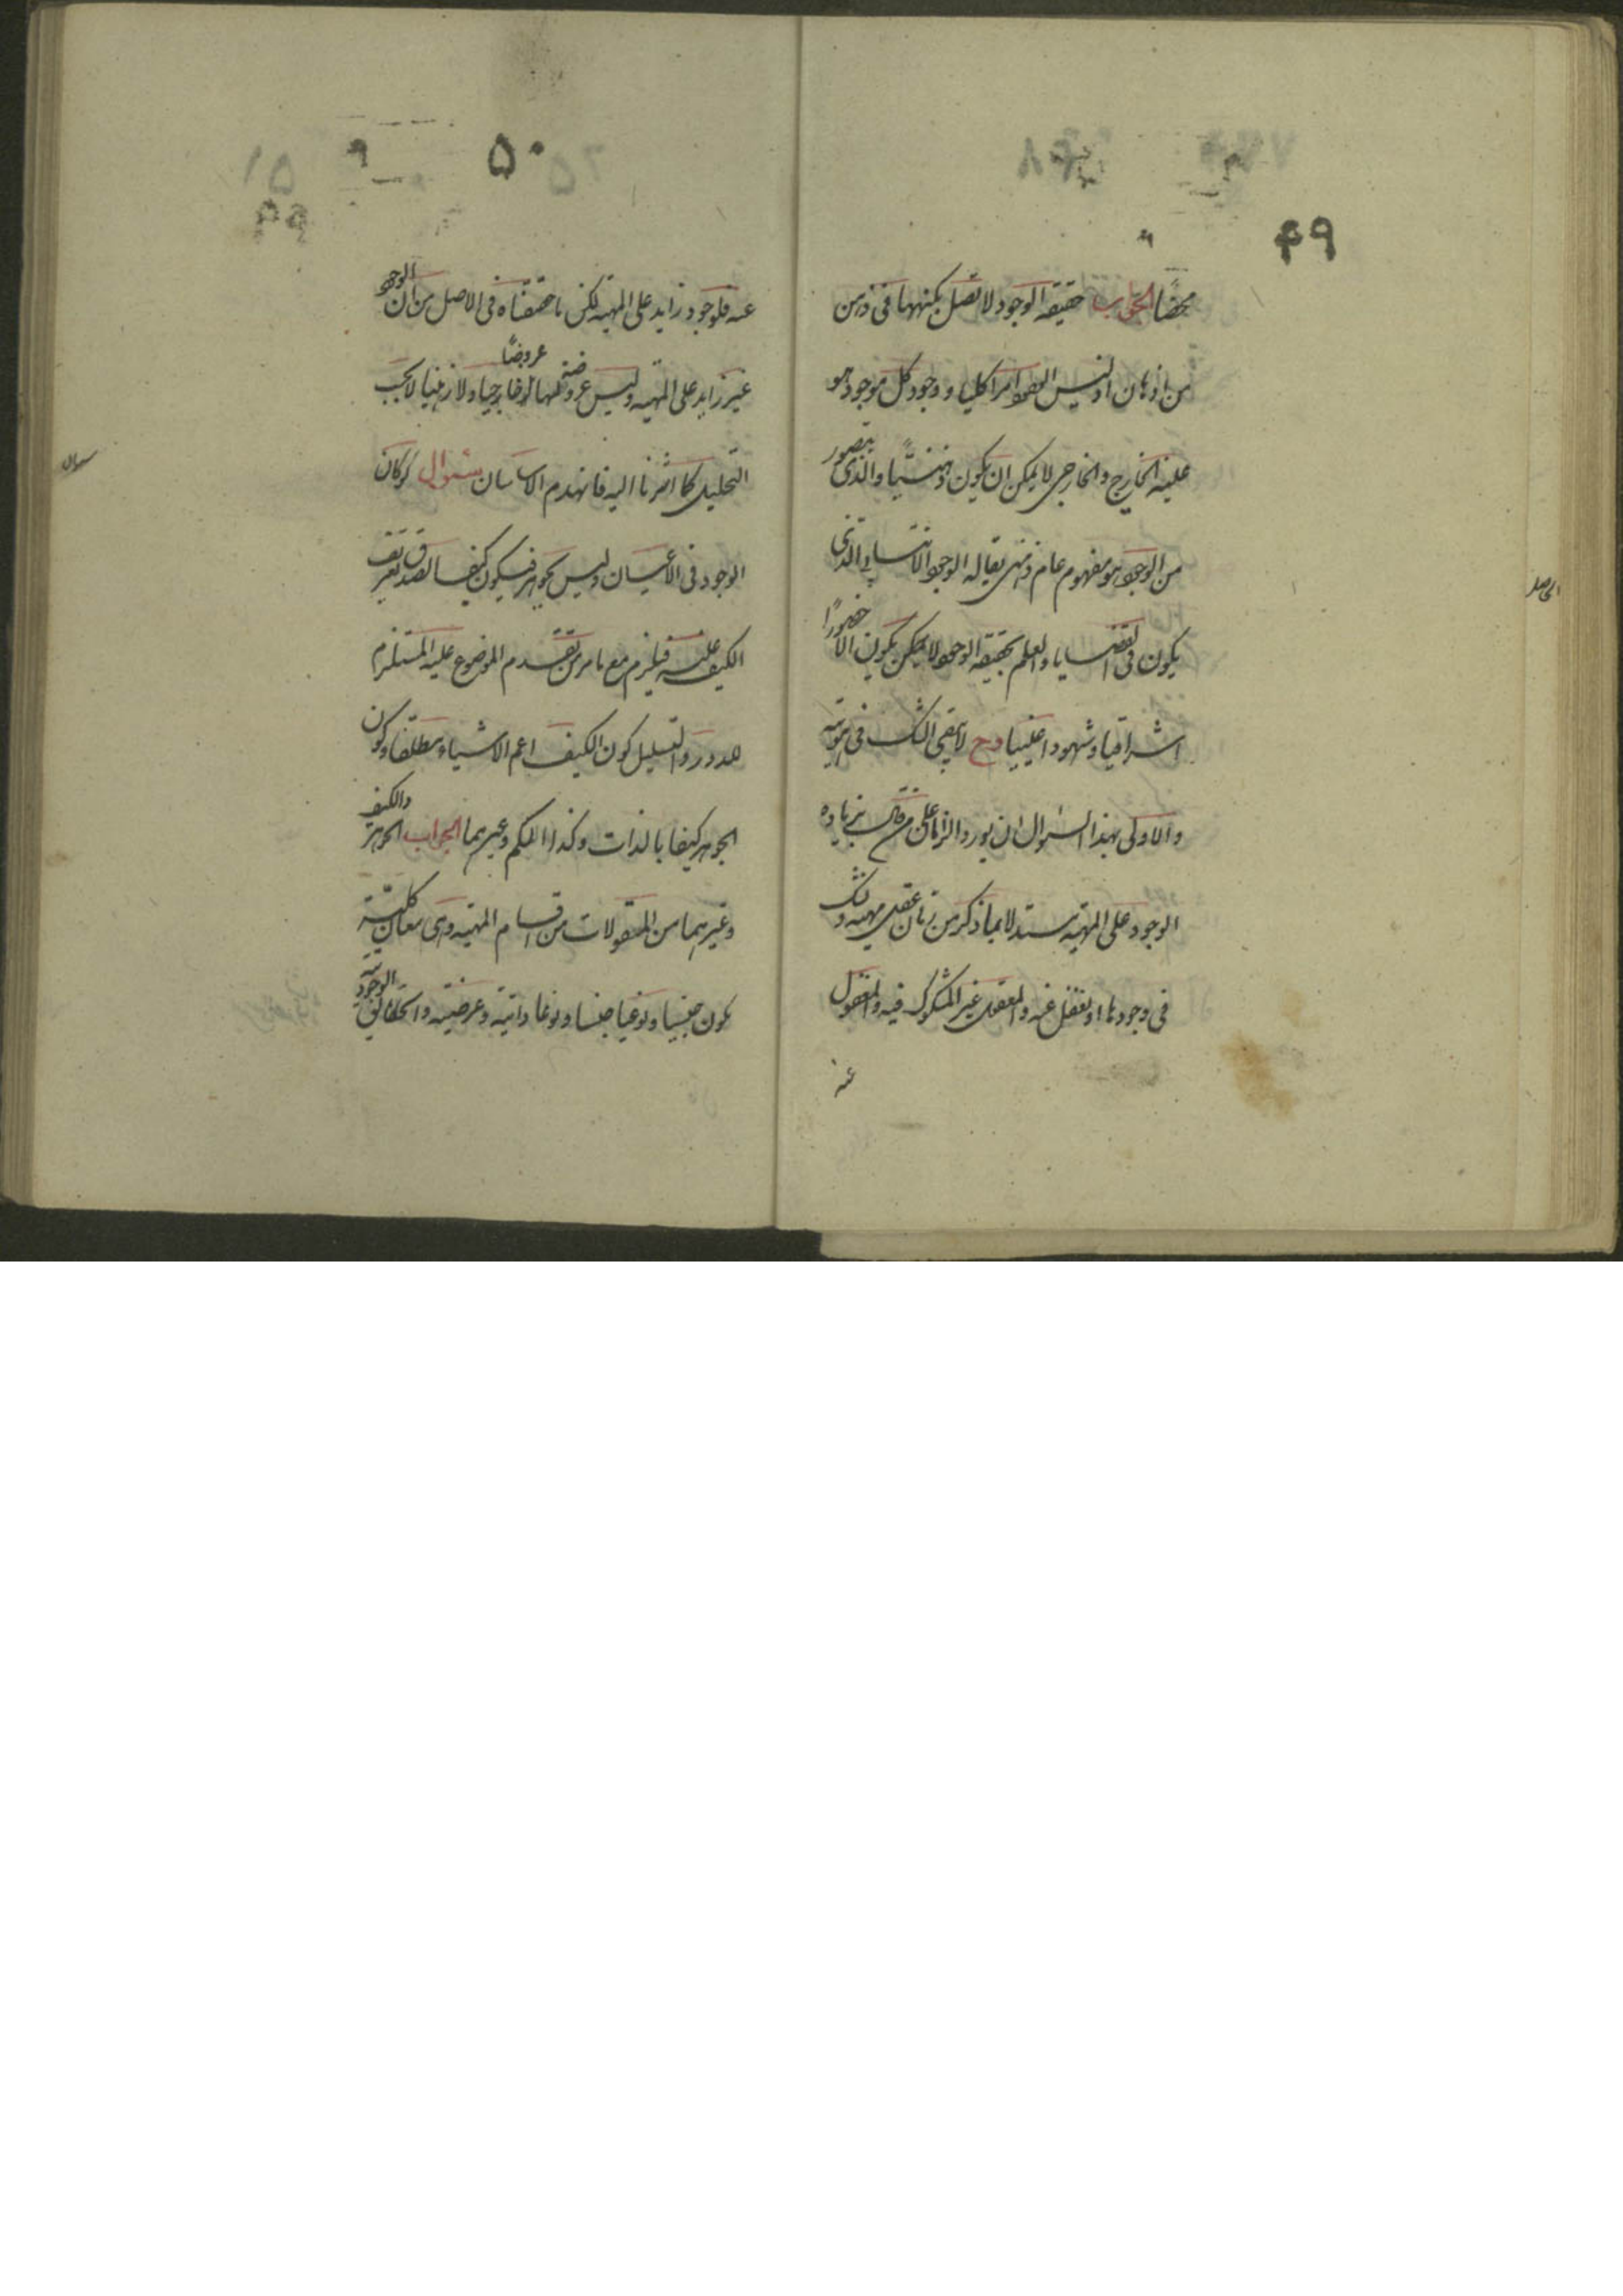 ۴۹
محضًا الجواب حقيقة الوجود لا تحصل بكنهها فى ذهن
من الأذهان اذ ليس الوجود امرا كليا و وجود كل موجود هو
عينه الخارجى والخارجى لا يمكن ان يكون ذهنيًّا والذى يتصور
من الوجود هو مفهوم عام ذهنى يقال له الوجود الانتسابى الذى
يكون فى القضايا والعلم بحقيقة الوجود لا يمكن يكون الا حضورًا
اشراقيا وشهودا عينيا وح لا يبقى الشك فى هويته
والاولى بهذا السؤال ان يورد الزاما على من قال بزيادة
الوجود على المهية مستدلا بما ذكر من انا نعقل مهية ونشك
فى وجودها او نغفل عنه والمعقول غير المشكوك فيه والمغفول
عنه
الحاصل
۵۰
عنه فلوجود زايد على المهية لكن ما حققناه فى الاصل من ان الوجود
غير زايد على المهية وليس عروضه لها عروضًا خارجيا ولا ذهنيا الا بحسب
التحليل كما اشرنا اليه فانهدم الاساسان سؤال لو كان
الوجود فى الأعيان وليس بجوهر فيكون كيفا لصدق تعريف
الكيف عليه فيلزم مع ما مر من تقدم الموضوع عليه المستلزم
للدور والتسلسل كون الكيف اعم الاشياء مطلقا وكون
الجوهر كيفا بالذات وكذا الكم وغيرهما الجواب الجوهر والكيف
وغيرهما من المقولات من اقسام المهية وهى معان كليّة
يكون جنسا ونوعيا جنسا ونوعا ذاتية وعرضية والحقائق الوجودية
سؤال